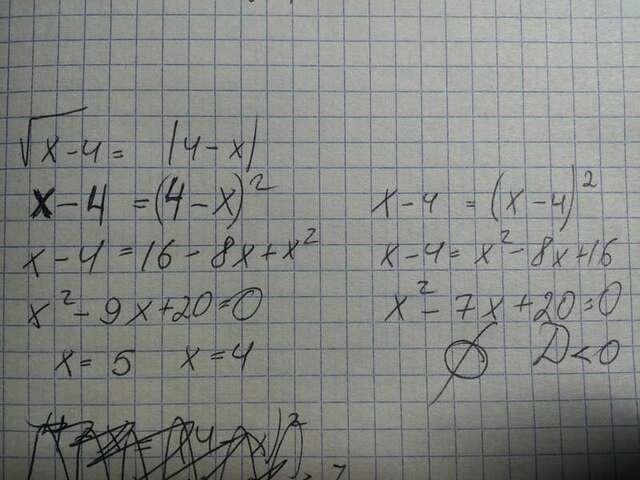 √x-4 = |4-x|
x-4 = (4-x)²
x-4 = 16-8x+x²
x²-9x+20=0
x=5 x=4
x-4 = (x-4)²
x-4 = x²-8x+16
x²-7x+20=0
∅ D<0